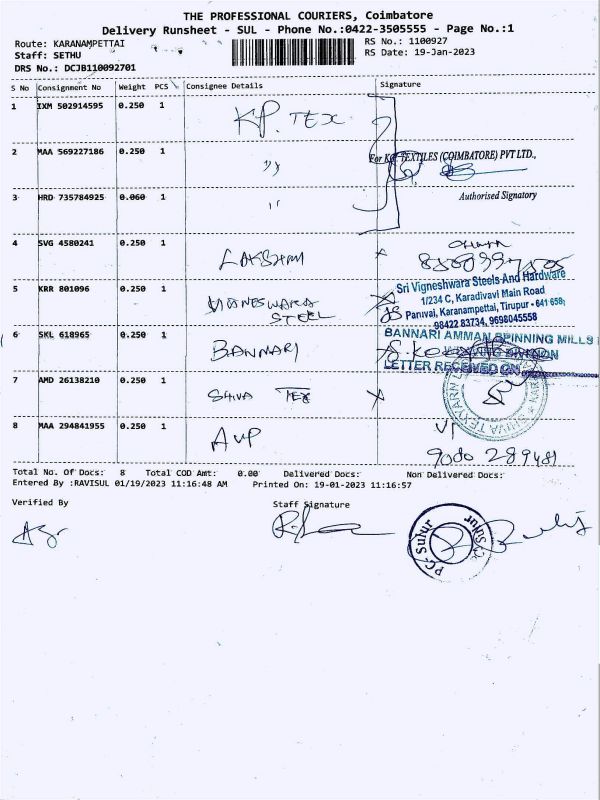 THE PROFESSIONAL COURIERS, Coimbatore
Delivery Runsheet - SUL - Phone No.:0422-3505555 - Page No.:1
Route: KARANAMPETTAI
Staff: SETHU
DRS No.: DCJB110092701
RS No.: 1100927
RS Date: 19-Jan-2023
S No Consignment No Weight PCS Consignee Details Signature
1 IXM 502914595 0.250 1 KP. TEX
2 MAA 569227186 0.250 1 ''
For K.P. TEXTILES (COIMBATORE) PVT LTD.,
3 HRD 735784925 0.060 1 ''
Authorised Signatory
4 SVG 4580241 0.250 1 LAKSHMI
5 KRR 801096 0.250 1 VIGNESWARA STEEL
Sri Vigneshwara Steels And Hardware
1/234 C, Karadivavi Main Road
Paruvai, Karanampettai, Tirupur - 641 658,
98422 83734, 9698045558
6 SKL 618965 0.250 1 BANNARI
BANNARI AMMAN SPINNING MILLS
WEAVING DIVISION
LETTER RECEIVED ON
7 AMD 26138210 0.250 1 SHIVA TEX
SHIVA TEXYARN L
8 MAA 294841955 0.250 1 AVP
9080 289481
Total No. Of Docs: 8 Total COD Amt: 0.00 Delivered Docs: Non Delivered Docs:
Entered By :RAVISUL 01/19/2023 11:16:48 AM Printed On: 19-01-2023 11:16:57
Verified By Staff Signature
PC-Sulur